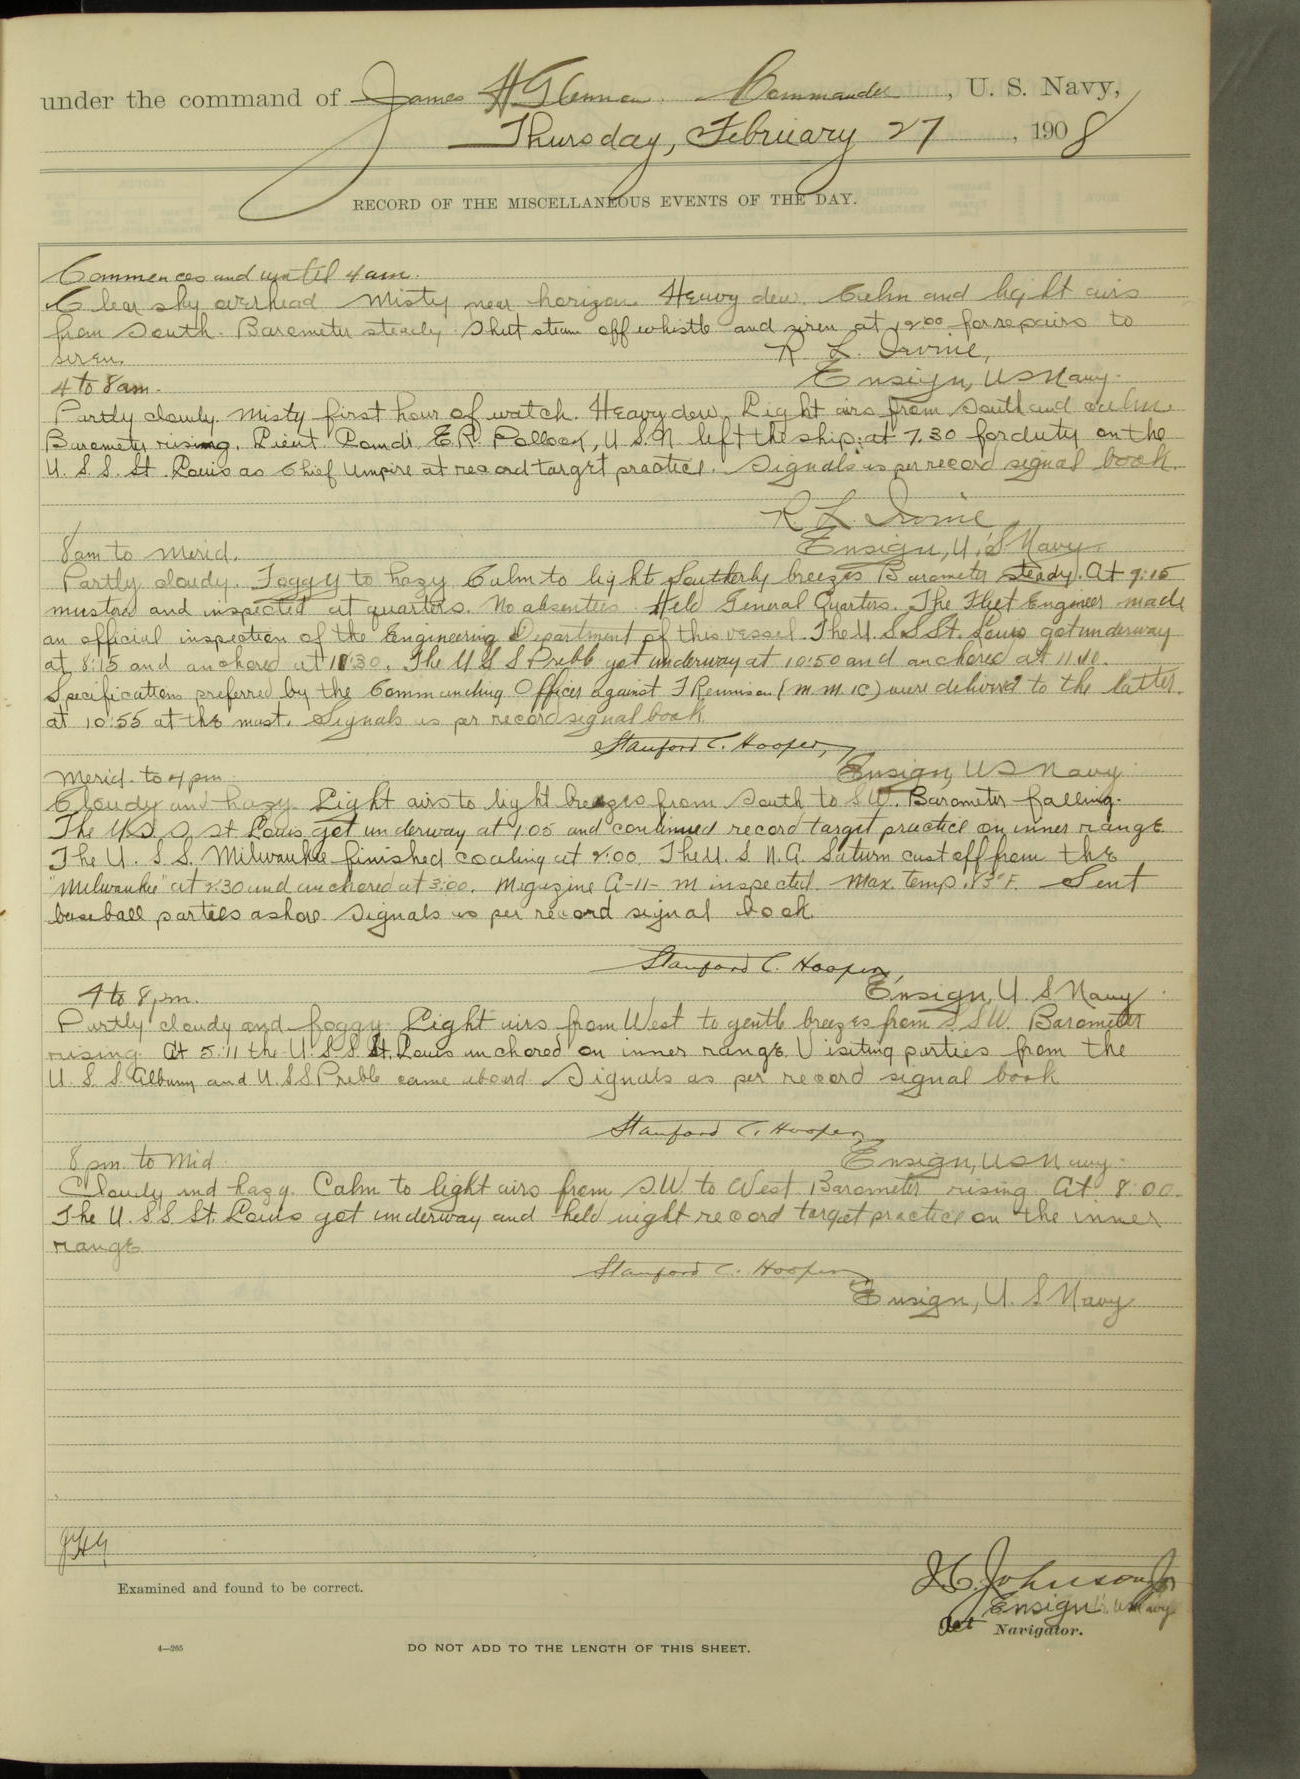 under the command of James H Glennon, Commander, U. S. Navy,
Thursday, February 27, 1908
RECORD OF THE MISCELLANEOUS EVENTS OF THE DAY.
Commences and until 4 am.
Clear sky overhead Misty near horizon Heavy dew. Calm and light airs
from South. Barometer steady Shut steam off whistle and siren at for repairs to
siren.
R. L. Irvine,
Ensign, U S Navy.
4 to 8 am.
Partly cloudy. Misty first hour of watch. Heavy dew. Light airs from South and calm.
Barometer rising. Lieut Comdr E. R. Pollock, U S. N. left the ship at 7.30 for duty on the
U. S. S. St. Louis as Chief Umpire at record target practice. Signals as per record signal book.
R. L. Irvine
Ensign, U. S. Navy.
8 am to Merid.
Partly cloudy. Foggy to hazy Calm to light Southerly breezes Barometer steady. At 9:15
mustered and inspected at quarters. No absentees. Held General Quarters. The Fleet Engineer made
an official inspection of the Engineering Department of this vessel. The U. S S St. Louis got underway
at 8:15 and anchored at 11:30. The U S S Preble got underway at 10:50 and anchored at 11.
Specifications preferred by the Commanding Officer against (M. M. 1C) were delivered to the latter
at 10:55 at the mast. Signals as per record signal book.
Stanford C. Hooper,
Ensign, U S Navy.
Merid. to 4 pm
Cloudy and hazy. Light airs to light breezes from South to SW. Barometer falling.
The U. S. S. St Louis got underway at 1.05 and continued record target practice on inner range
The U. S. S. Milwaukee finished coaling at 2:00. The U. S. N. A. Saturn cast off from the
"Milwaukee" at 2:30 and anchored at 3:00. Magazine A-11-M inspected. Max. temp. 83° F. Sent
baseball parties ashore Signals as per record signal book.
Stanford C. Hooper,
Ensign, U. S Navy.
4 to 8 pm.
Partly cloudy and foggy. Light airs from West to gentle breezes from S. S W. Barometer
rising. At 5:11 the U. S. S. St. Louis anchored on inner range. Visiting parties from the
U. S. S. Albany and U. S S Preble came aboard. Signals as per record signal book
Stanford C. Hooper,
Ensign, U S Navy.
8 pm. to Mid
Cloudy and hazy. Calm to light airs from S.W. to West. Barometer rising. At 8:00.
The U. S S St. Louis got underway and held night record target practice on the inner
range
Stanford C. Hooper,
Ensign, U. S Navy
JHG
Examined and found to be correct.
Johnson Jr
Ensign U S Navy
Act Navigator.
4—265
DO NOT ADD TO THE LENGTH OF THIS SHEET.